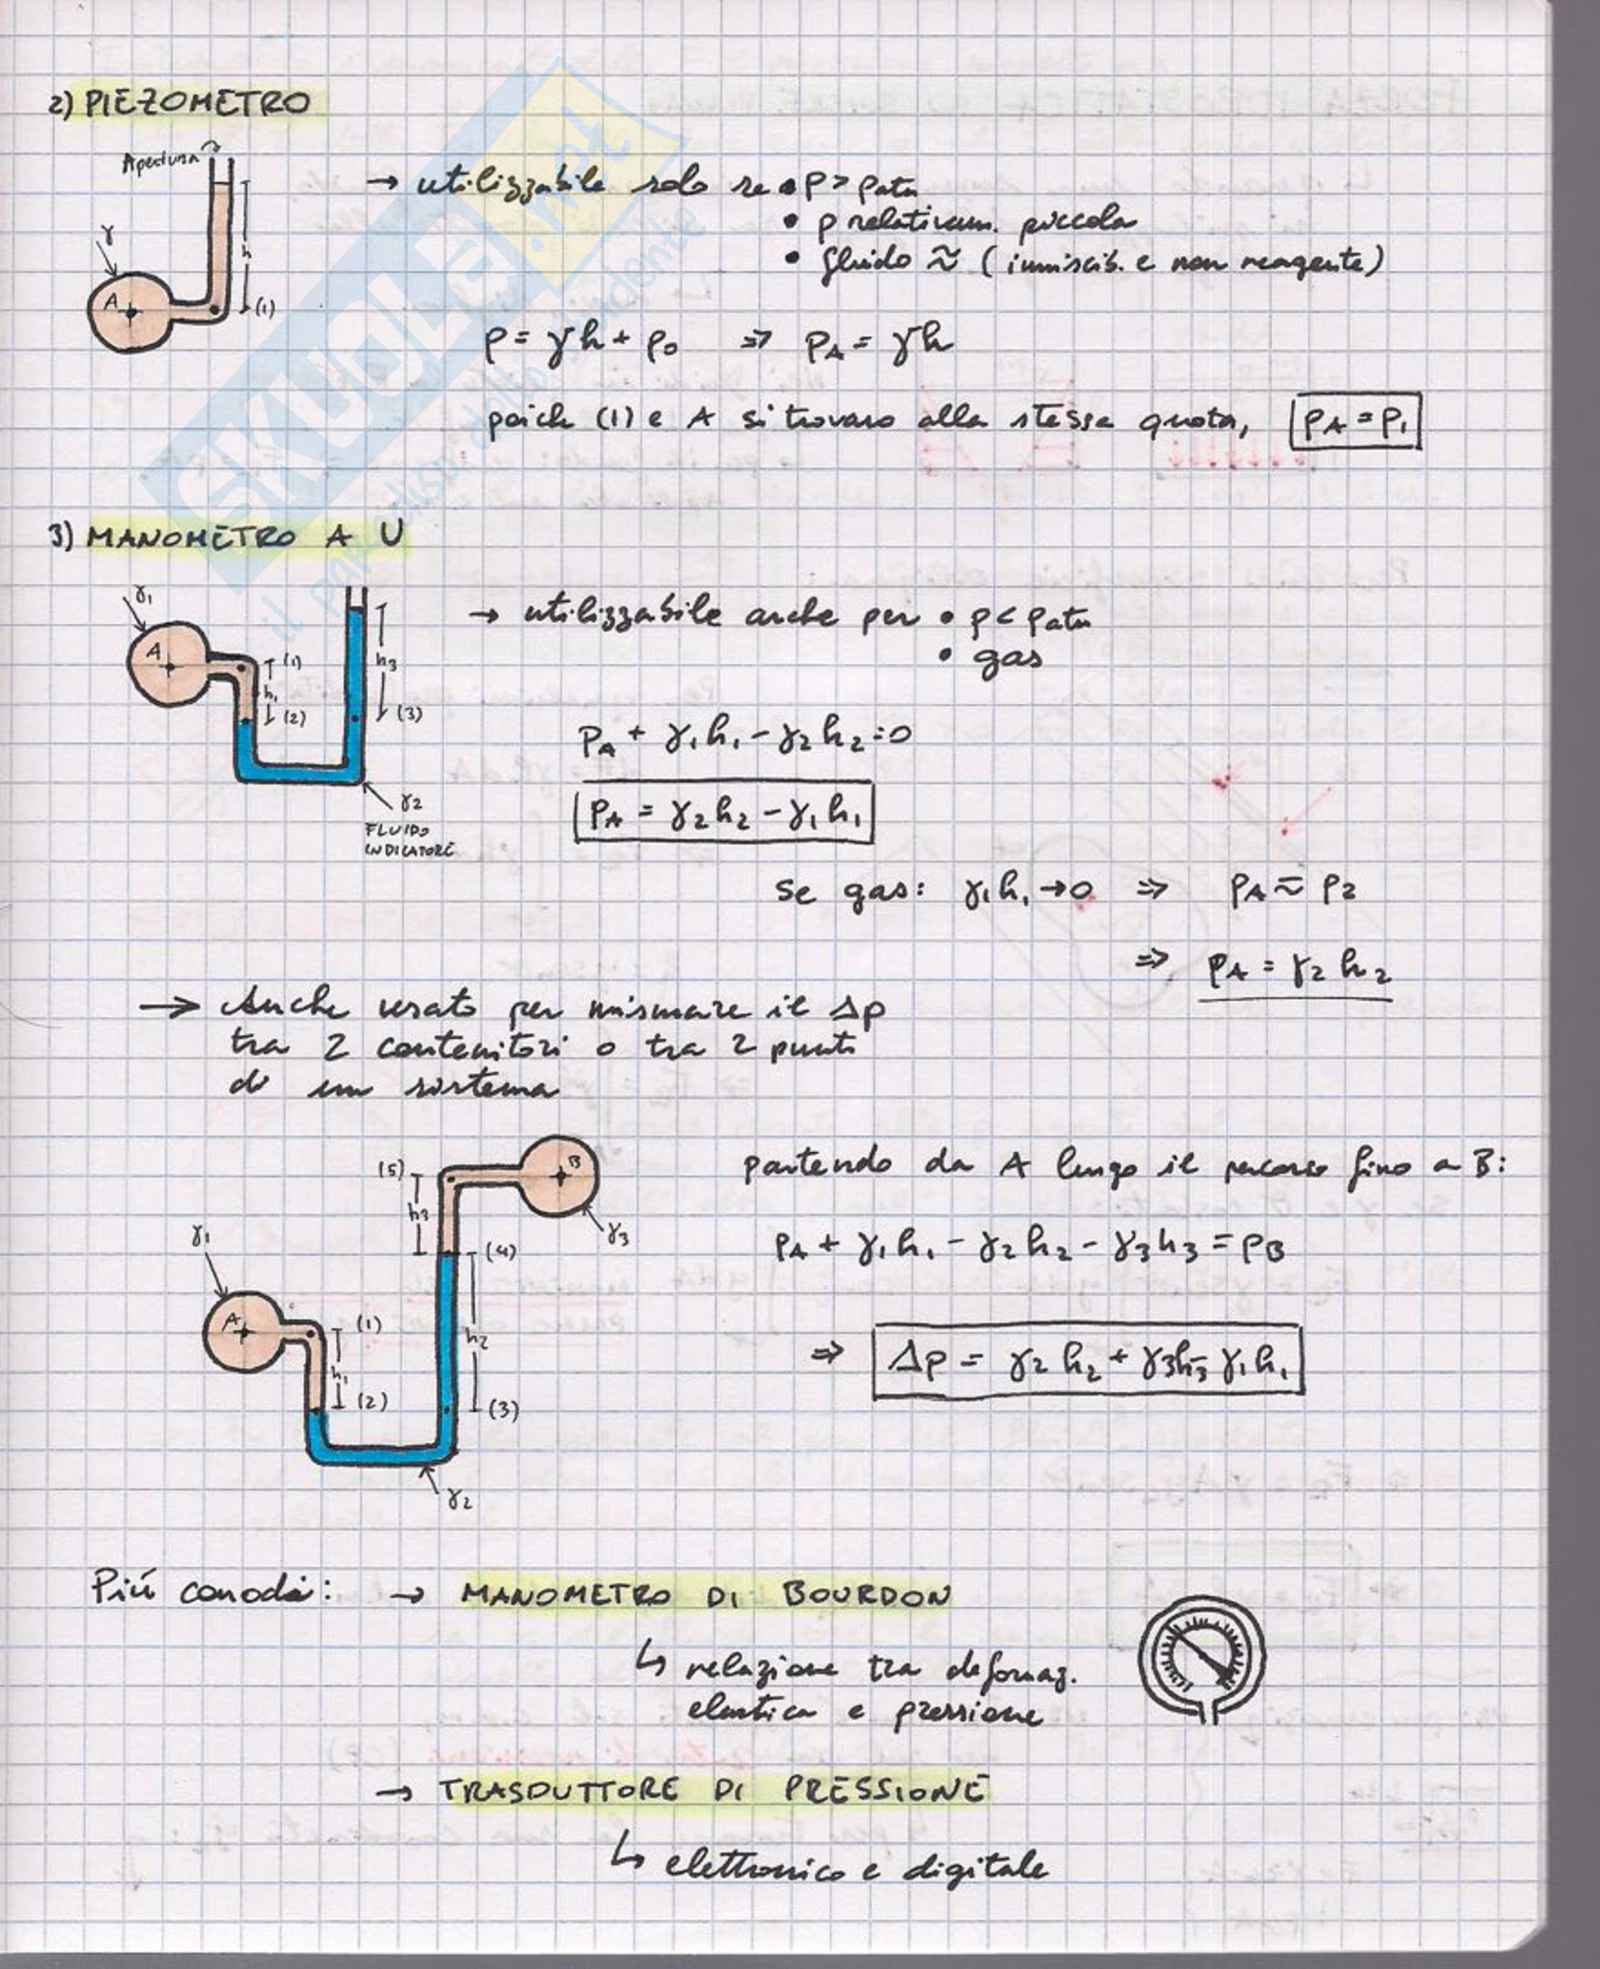 2) PIEZOMETRO
Apertura
γ
A
h
(1)
→ utilizzabile solo se • p > patm
• p relativam. piccola
• fluido ≈ (immiscib. e non reagente)
p = γh + p₀ ⇒ pA = γh
poiché (1) e A si trovano alla stessa quota, pA = p₁
SKUOLA.net
3) MANOMETRO A U
γ₁
A
(1)
h₁
(2)
h₃
(3)
γ₂
FLUIDO
INDICATORE
→ utilizzabile anche per • p < patm
• gas
pA + γ₁h₁ - γ₂h₂ = 0
pA = γ₂h₂ - γ₁h₁
se gas: γ₁h₁ → 0 ⇒ pA ≈ p₂
⇒ pA = γ₂h₂
→ Anche usato per misurare il Δp
tra 2 contenitori o tra 2 punti
di un sistema
(5)
B
h₃
γ₃
(4)
γ₁
A
(1)
h₁
(2)
h₂
(3)
γ₂
partendo da A lungo il percorso fino a B:
pA + γ₁h₁ - γ₂h₂ - γ₃h₃ = pB
⇒ Δp = γ₂h₂ + γ₃h₃ - γ₁h₁
Più comodi: → MANOMETRO DI BOURDON
↳ relazione tra deformaz.
elastica e pressione
→ TRASDUTTORE DI PRESSIONE
↳ elettronico e digitale